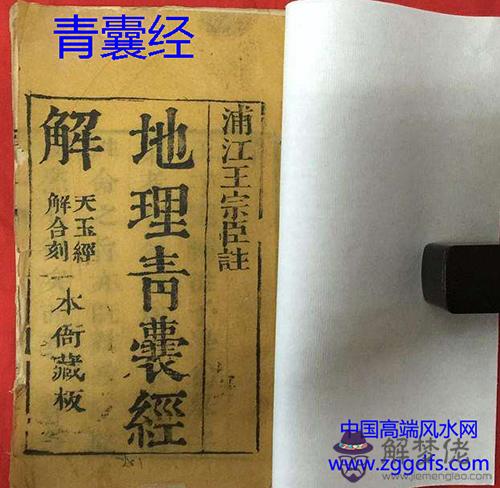 青囊经
浦江王宗臣註
地理青囊經
解
天玉經
解合刻
本衙藏板
中国高端风水网
www.zggdfs.com
解梦佬
www.jiemenglao.com